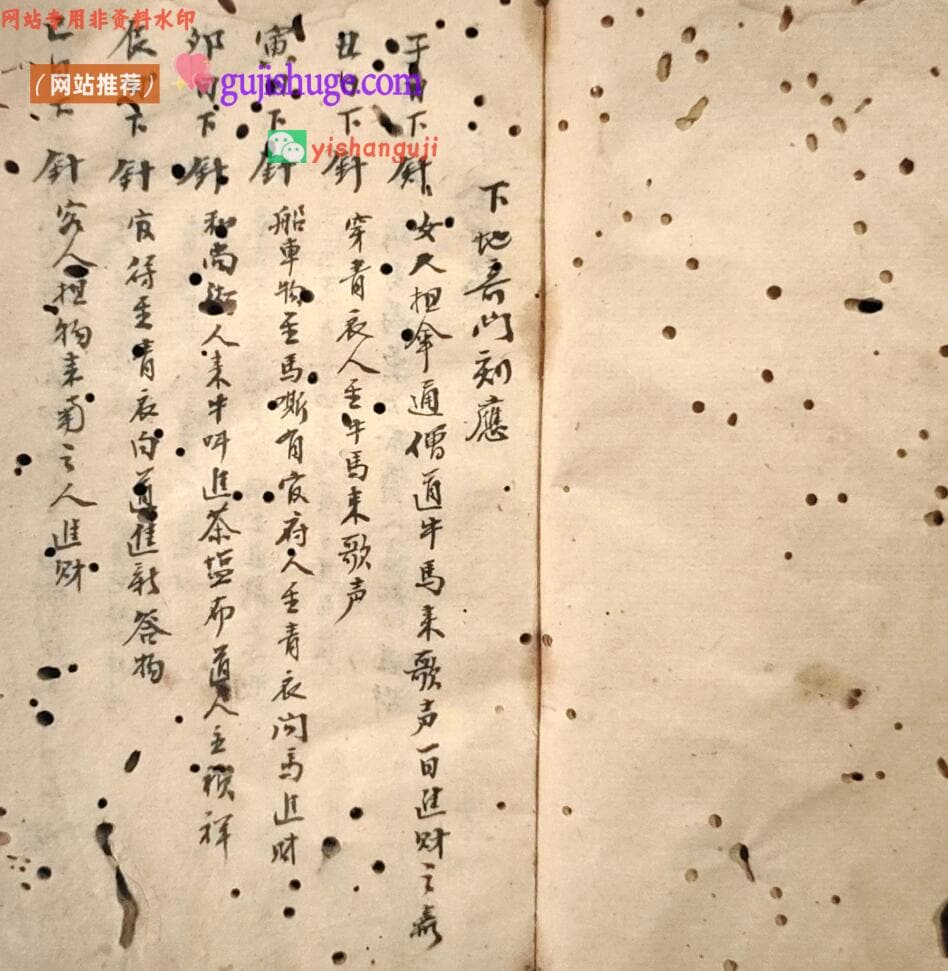 网站专用非资料水印
（网站推荐）
gujishuge.com
yishanguji
下地吾门刻應
子日下針 女人担伞通僧道牛馬来歌声一百進财之喜
丑日下針 穿青衣人至牛馬来歌声
寅日下針 船車物至馬嘶有官府人至青衣问馬進财
卯日下針 和尚 人来牛叫進茶塩布道人主祯祥
辰日下針 官得至青衣白道進 物
巳日下針 客人担物来 之人進财